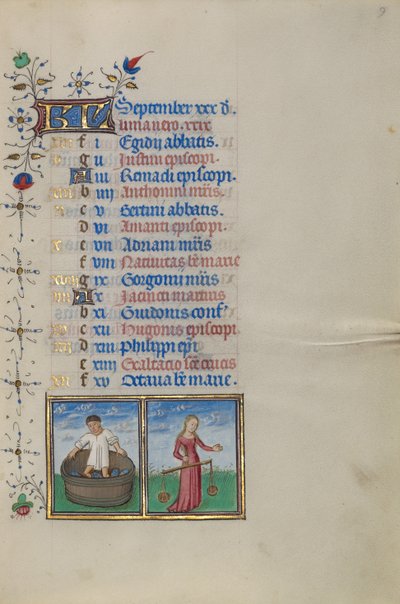 9
KL September xxx d̄.
Luna vero. xxix
f i Egidij abbatis.
g ii Justini episcopi.
A iii Remacli episcopi.
b iiii Anthonini m̄is.
c v Bertini abbatis.
d vi Amanti episcopi
e vii Adriani m̄is
f viii Nativitas be marie
g ix Gorgonii m̄is
A x Jacincti martiris
b xi Guidonis conf
c xii Hugonis episcopi.
d xiii Philippi ep̄i
e xiiii Exaltacio sc̄e crucis
f xv Octava be marie.